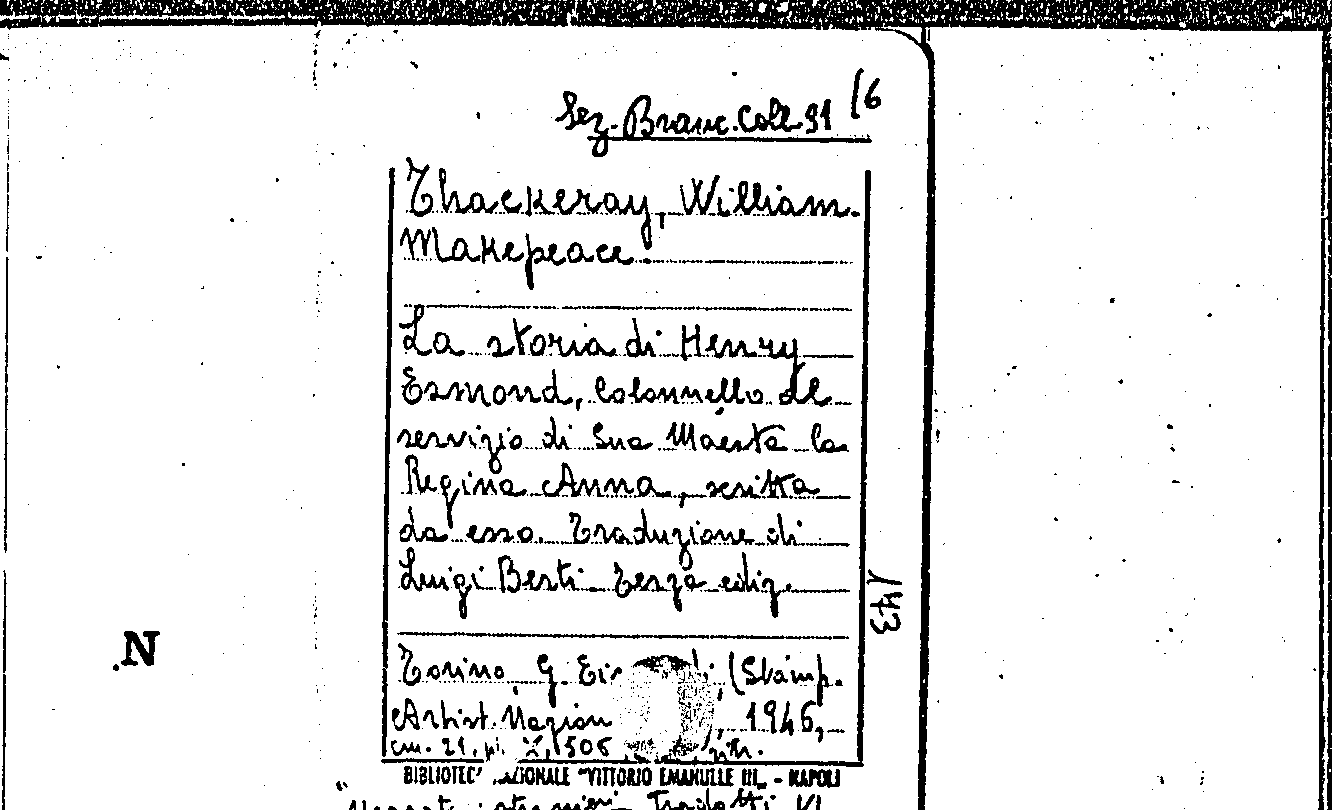 Sez. Branc. Coll. 91 /6
Thackeray, William
Makepeace.
La storia di Henry
Esmond, Colonnello al
servizio di Sua Maestà la
Regina Anna, scritta
da esso. Traduzione di
Luigi Berti. Terza ediz.
143
N.
Torino, G. (Stamp.
Artist. Nazion , 1946,
cm. 21, X, 506
NAZIONALE "VITTORIO EMANUELE III" - NAPOLI
Tradotti, VI